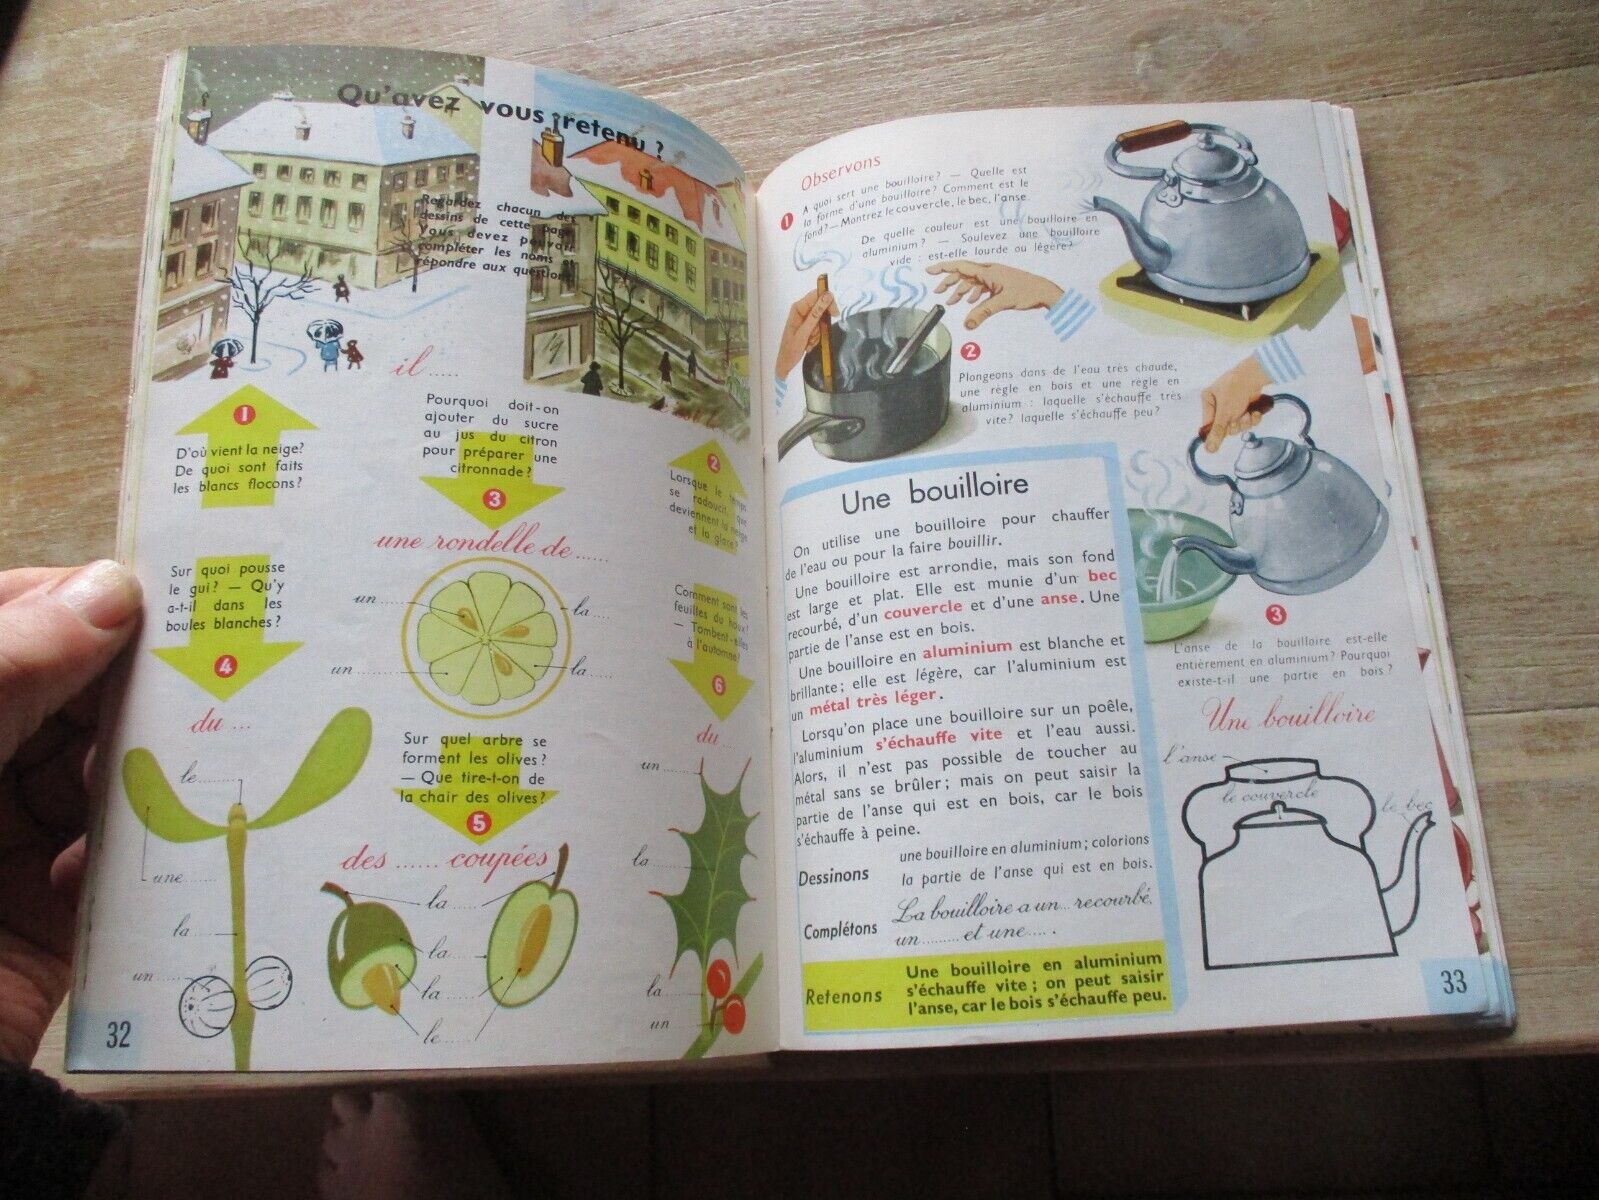 Qu'avez vous retenu ?
Regardez chacun des
dessins de cette page.
Vous devez pouvoir
compléter les noms et
répondre aux questions.
il .....
1
D'où vient la neige?
De quoi sont faits
les blancs flocons?
Pourquoi doit-on
ajouter du sucre
au jus du citron
pour préparer une
citronnade?
3
2
Lorsque le temps
se radoucit, que
deviennent la neige
et la glace?
une rondelle de ......
un ........
la .....
un ........
la .....
Sur quoi pousse
le gui? — Qu'y
a-t-il dans les
boules blanches?
4
du ...
le ........
une .......
la ......
un ......
Sur quel arbre se
forment les olives?
— Que tire-t-on de
la chair des olives?
5
des ...... coupées
la .....
la .....
la .....
le .....
Comment sont les
feuilles du houx?
— Tombent-elles
à l'automne?
6
du ...
un .....
la .....
la .....
un
32
Observons
1 A quoi sert une bouilloire? — Quelle est
la forme d'une bouilloire? Comment est le
fond? — Montrez le couvercle, le bec, l'anse.
De quelle couleur est une bouilloire en
aluminium? — Soulevez une bouilloire
vide : est-elle lourde ou légère?
2
Plongeons dans de l'eau très chaude,
une règle en bois et une règle en
aluminium : laquelle s'échauffe très
vite? laquelle s'échauffe peu?
Une bouilloire
On utilise une bouilloire pour chauffer
de l'eau ou pour la faire bouillir.
Une bouilloire est arrondie, mais son fond
est large et plat. Elle est munie d'un bec
recourbé, d'un couvercle et d'une anse. Une
partie de l'anse est en bois.
Une bouilloire en aluminium est blanche et
brillante; elle est légère, car l'aluminium est
un métal très léger.
Lorsqu'on place une bouilloire sur un poêle,
l'aluminium s'échauffe vite et l'eau aussi.
Alors, il n'est pas possible de toucher au
métal sans se brûler; mais on peut saisir la
partie de l'anse qui est en bois, car le bois
s'échauffe à peine.
Dessinons une bouilloire en aluminium; colorions
la partie de l'anse qui est en bois.
Complétons La bouilloire a un... recourbé,
un ......... et une .....
Retenons Une bouilloire en aluminium
s'échauffe vite; on peut saisir
l'anse, car le bois s'échauffe peu.
3
L'anse de la bouilloire est-elle
entièrement en aluminium? Pourquoi
existe-t-il une partie en bois?
Une bouilloire
l'anse
le couvercle
le bec
33